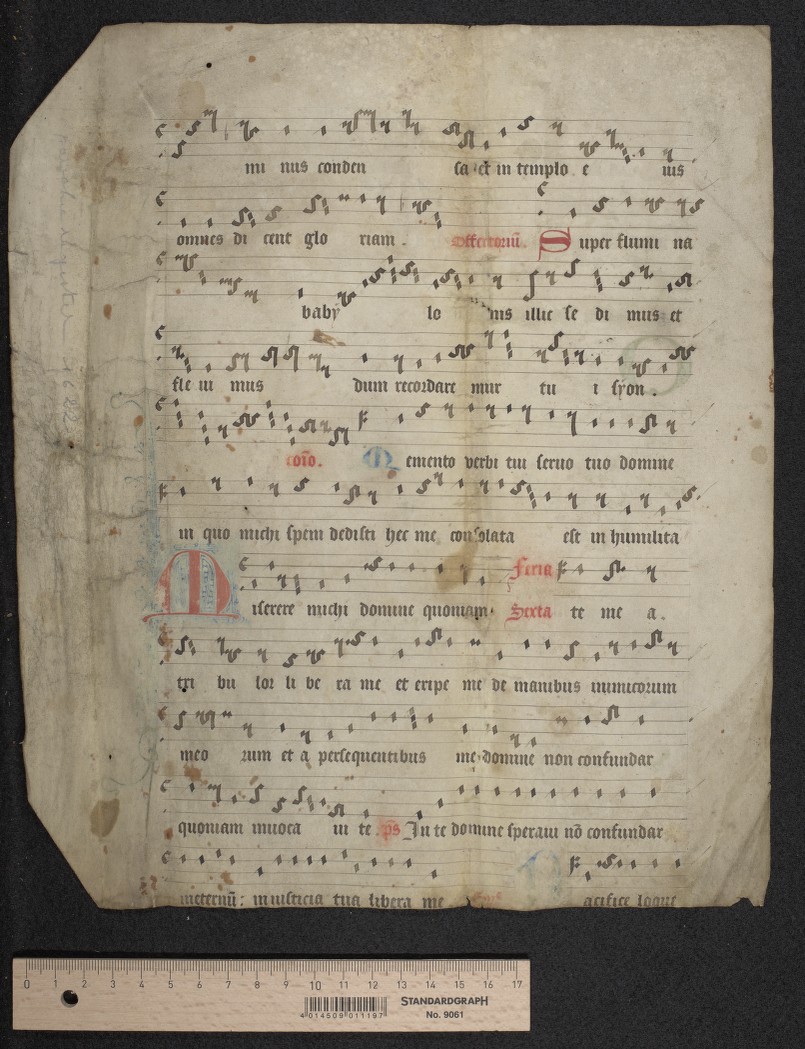 mi nus conden sa et in templo e ius
omnes di cent glo riam. Offertoriū. Super flumi na
baby lo nis illic se di mus et
fle ui mus dum recordare mur tu i syon.
coīo. Memento verbi tui seruo tuo domine
in quo michi spem dedisti hec me consolata est in humilita
Miserere michi domine quoniam Feria
Sexta te me a.
tri bu lor li be ra me et eripe me de manibus inimicorum
meo rum et a persequentibus me domine non confundar
quoniam inuoca ui te. p̄s In te domine speraui nō confundar
ineternū: iniusticia tua libera me acifice loque
0 1 2 3 4 5 6 7 8 9 10 11 12 13 14 15 16 17
STANDARDGRAPH
No. 9061
4 014509 011197